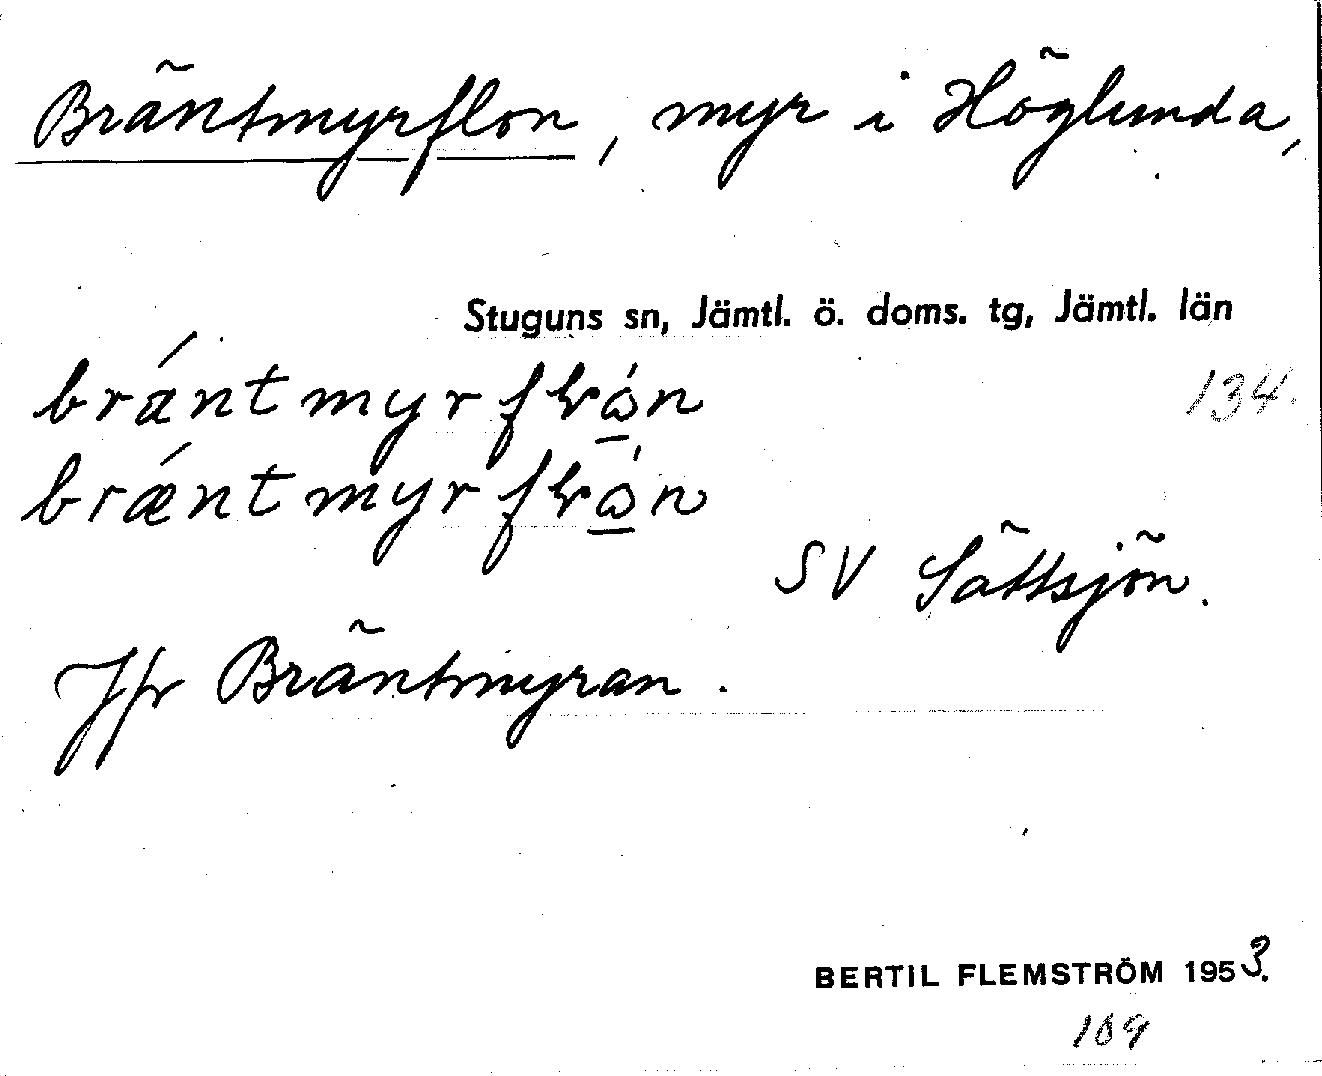 Bräntmyrflon, myr i Höglunda,
Stuguns sn, Jämtl. ö. doms. tg, Jämtl. län
134.
SV Sättsjön.
Jfr Bräntmyran.
BERTIL FLEMSTRÖM 1953.
109